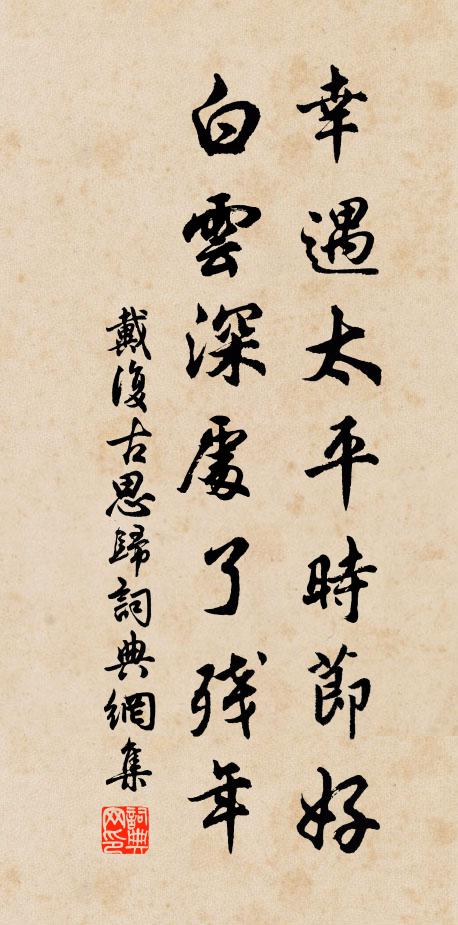 幸遇太平時節好
白雲深處了残年
戴復古思歸詞典網集
詞典网印